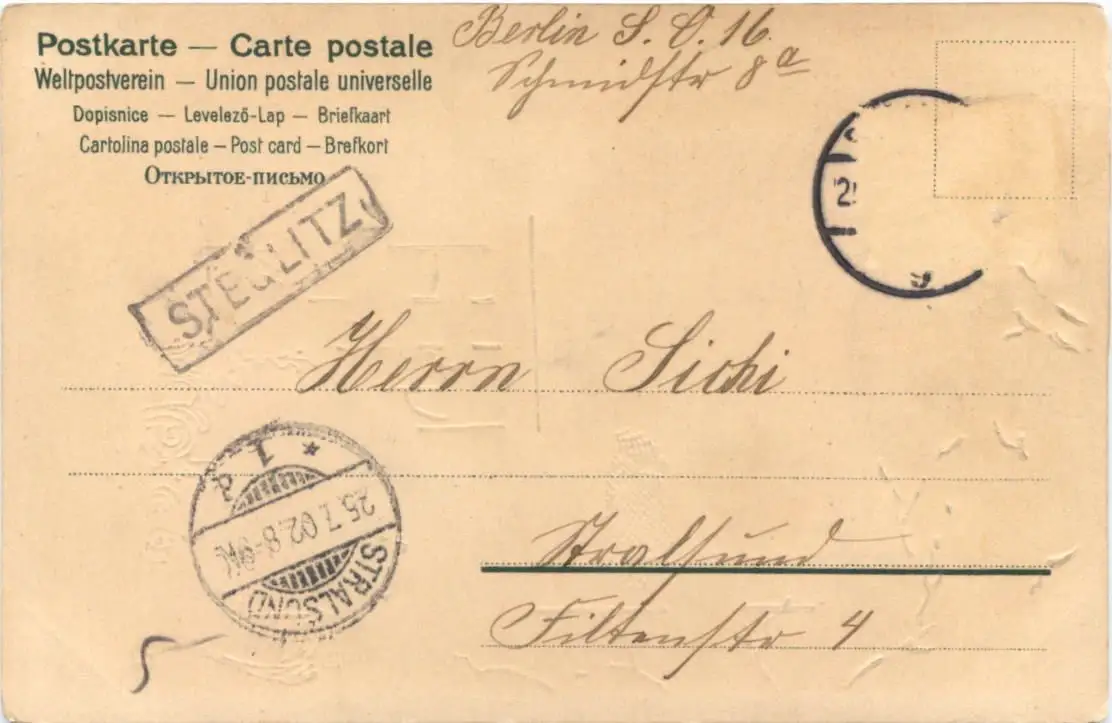 Postkarte — Carte postale
Weltpostverein — Union postale universelle
Dopisnice — Levelező-Lap — Briefkaart
Cartolina postale — Post card — Brefkort
Открытое-письмо
Berlin S. O. 16.
Schmidstr 8a
STEGLITZ
Herrn Sichi
STRALSUND
* 1
25.7.02.8-9N.
Stralsund
Filterstr 4